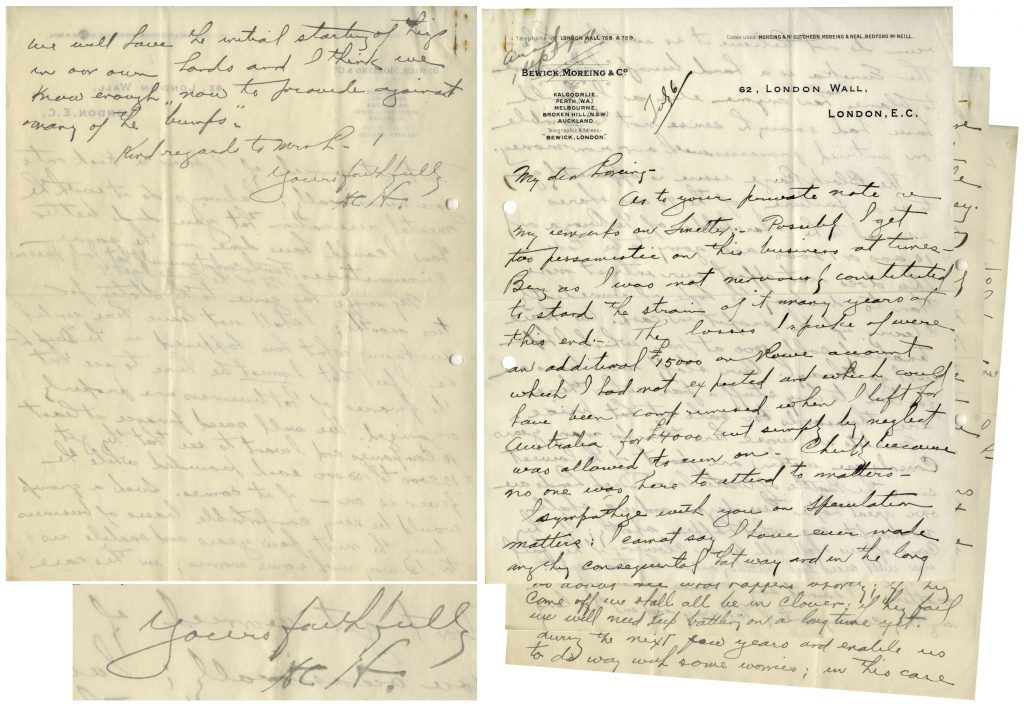 we will have the initial starting of things
in our own hands and I think we
know enough now to provide against
many of the "bumps".
Kind regards to Mrs L-
Yours faithfully
HCH.
Yours faithfully
HCH.
Telephone No LONDON WALL 758 & 759.
Codes used:- MOREING & McCUTCHEON, MOREING & NEAL, BEDFORD McNEILL.
BEWICK, MOREING & Co
KALGOORLIE.
PERTH, (W.A.)
MELBOURNE.
BROKEN HILL, (N.S.W)
AUCKLAND.
Telegraphic Address-
"BEWICK, LONDON."
62, LONDON WALL,
LONDON, E.C.
My dear Loring-
As to your private note re
my remarks on Smelter;- Possibly I get
too pessamistic on this business at times-
Being as I was not nervously constituted
to stand the strain of it many years at
this end-. The losses I spoke of were
an additional $15000 on Rowe account
which I had not expected and which could
have been compromised when I left for
Australia for $4000 but simply by neglect
was allowed to run on- Chiefly because
no one was here to attend to matters-
I sympathize with you on speculation
matters; I cannot say I have ever made
anything consequential that way and in the long
come off we shall all be in clover; if they fail
we will need keep battling on a long time yet
during the next few years and enable us
to do way with some worries; in this case